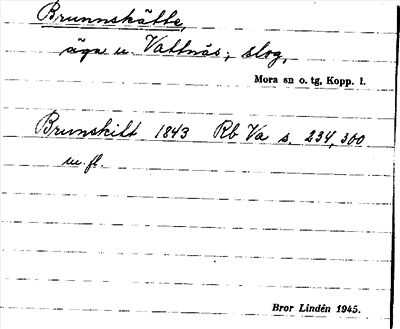 Brunnskätte,
äga u. Vattnäs; slog,
Mora sn o. tg, Kopp. l.
Brunskilt 1843 Rb Va s. 234, 300
m. fl.
Bror Lindén 1945.